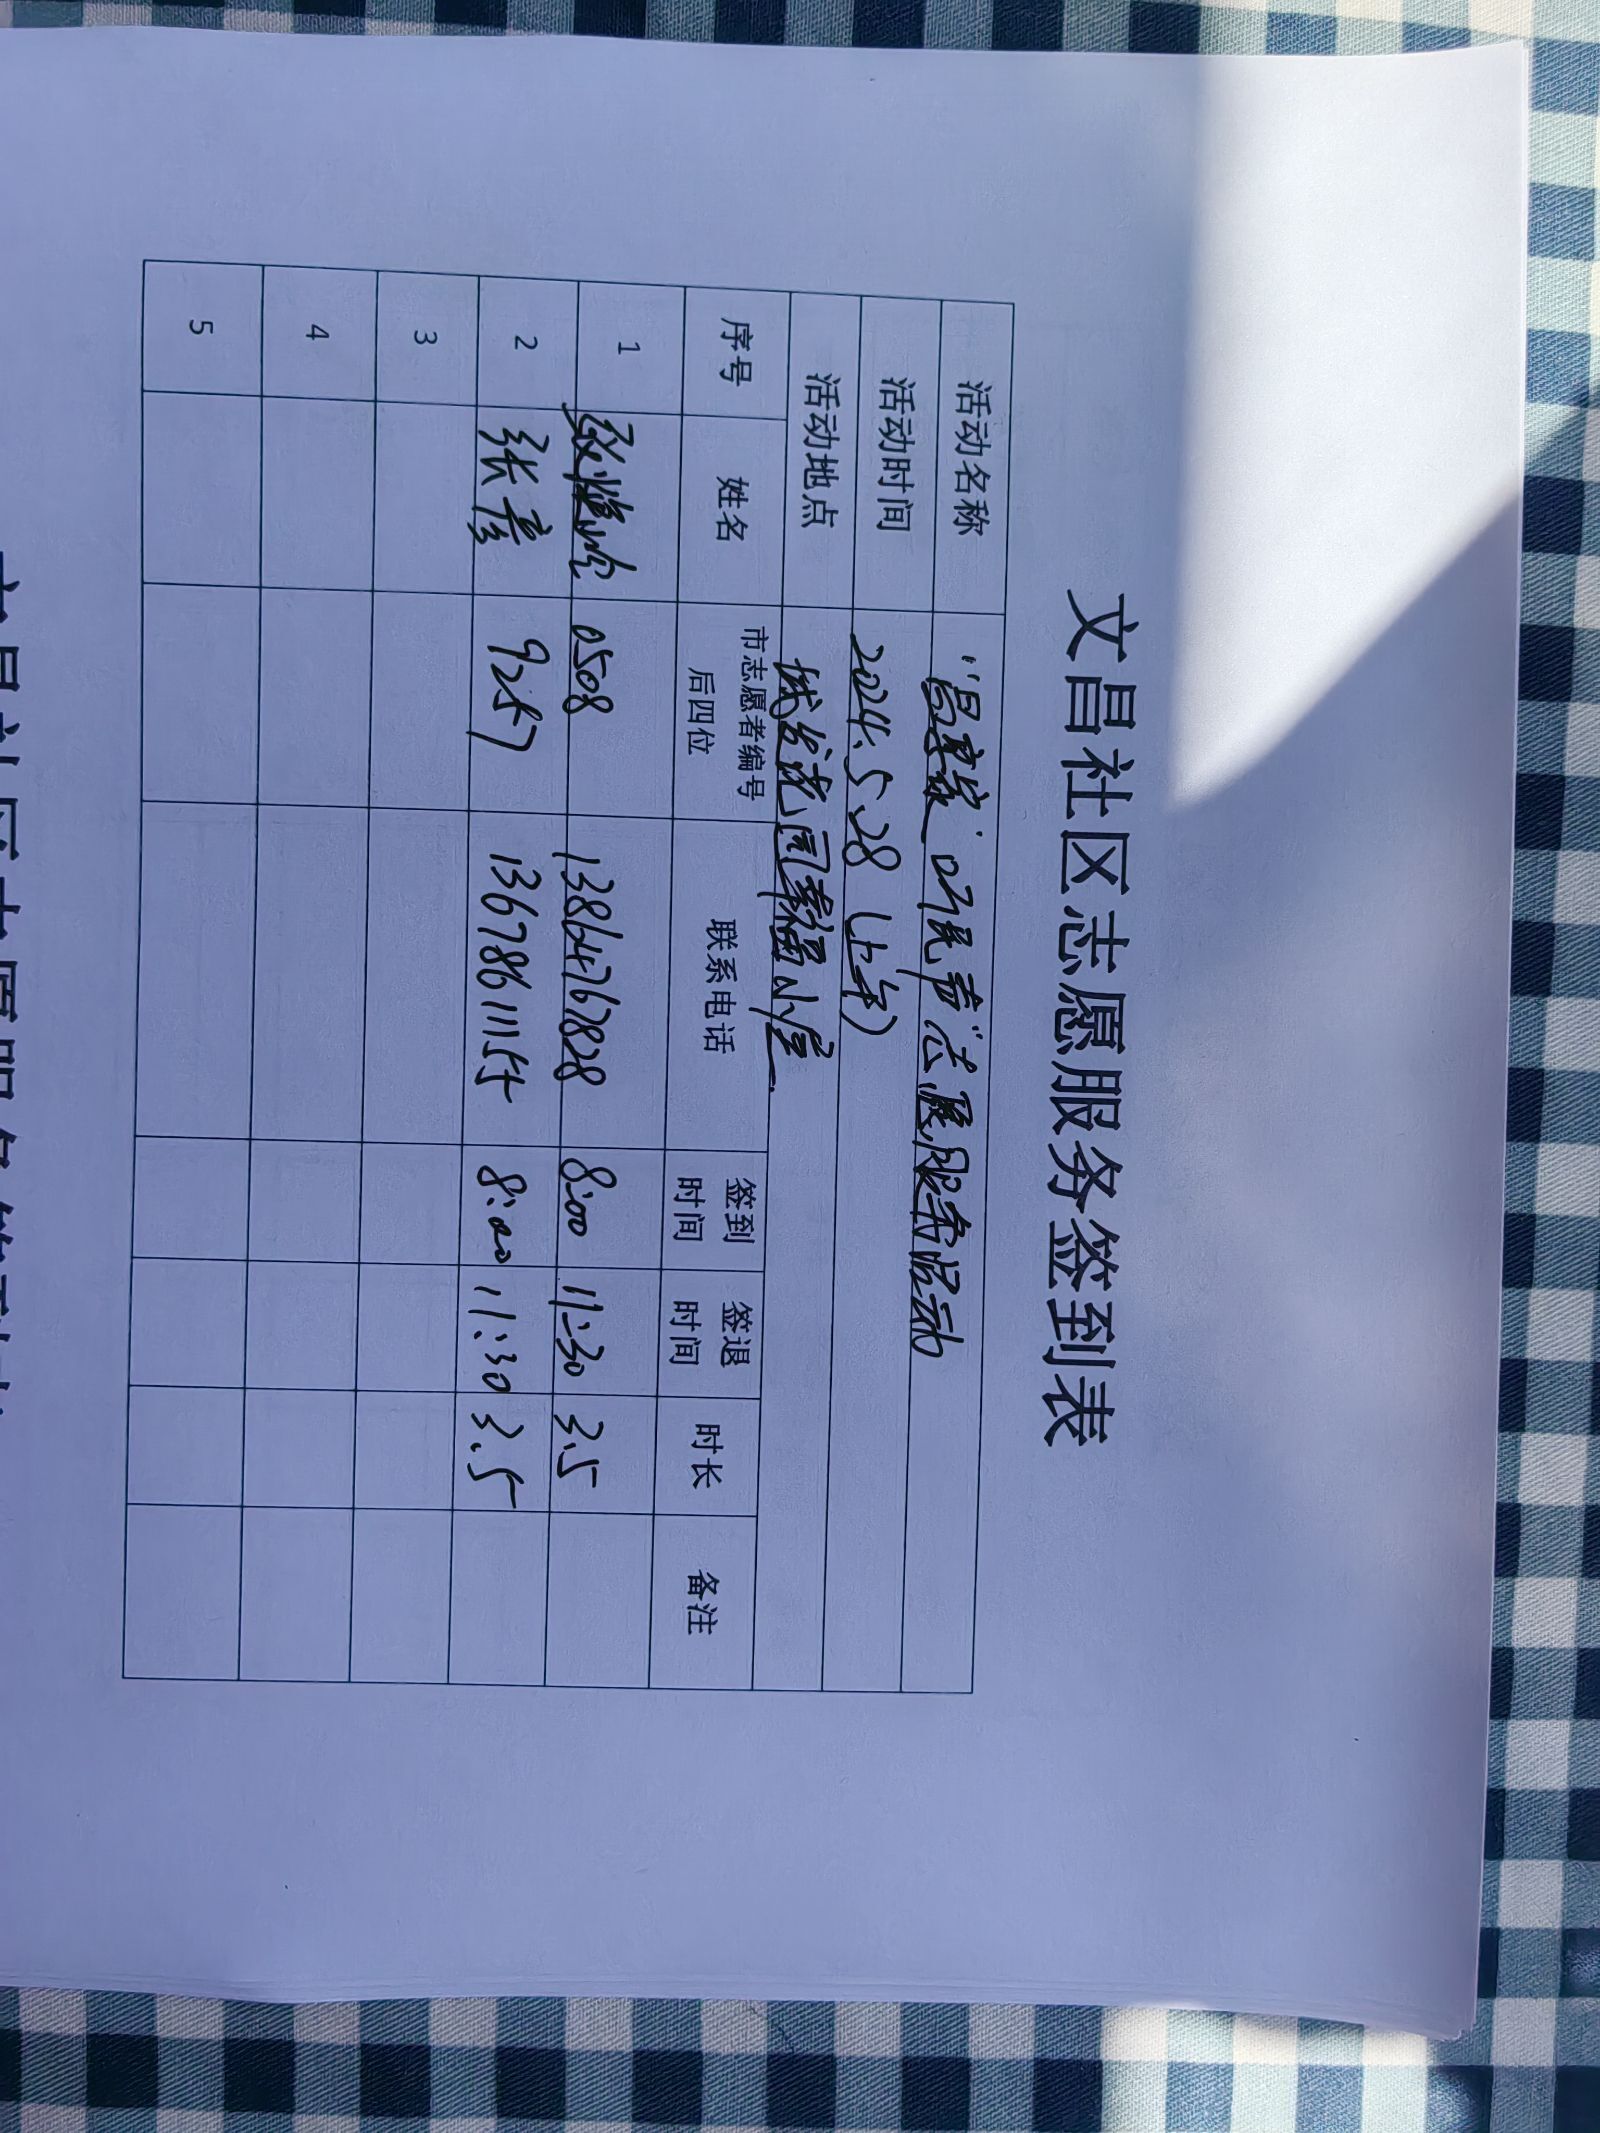 文昌社区志愿服务签到表
活动名称 "昌享缘"功民者志愿服务活动
活动时间 2024.5.28(上午)
活动地点 城发花园幸福小屋
序号 姓名 市志愿者编号后四位 联系电话 签到时间 签退时间 时长 备注
1 0508 13864767828 8:00 11:30 3.5
2 张彦 9257 13678611154 8:00 11:30 3.5
3
4
5